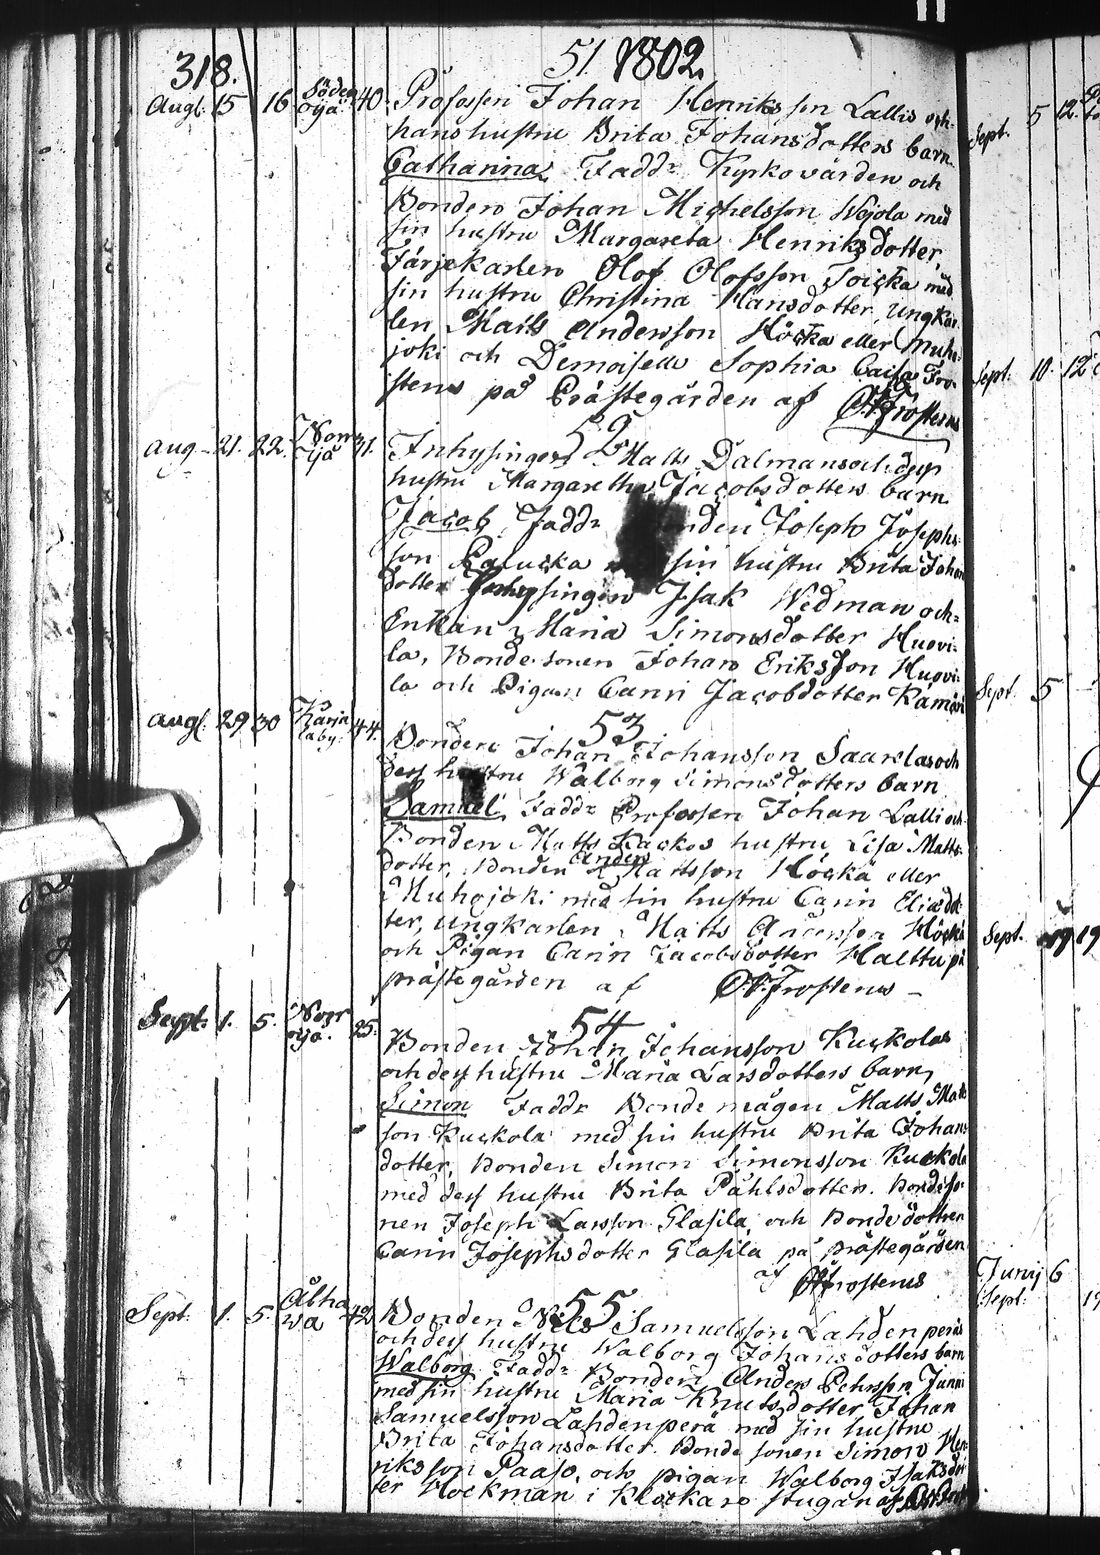 318. 51. 1802.
Augl. 15 16 Söder öyå 40. Profossen Johan Henriksson Lallis och
hans hustru Brita Johansdotters barn
Catharina, Fadd:r Kyrkovärden och
Bonden Johan Michelsson Wojola med
sin hustru Margareta Henriksdotter,
Färjekarlen Olof Olofsson Toicka med
sin hustru Christina Hansdotter, ungkar-
len Matts Andersson Höcka eller Muho-
joki och Demoiselle Sophia Caisa Fro-
sterus på Prästegården af Frosterus
52
Aug. 21. 22. Norr öyå 31. Inhysingen Matts Dalmans och dess
hustru Margaretha Jacobsdotters barn
Jacob, Fadd:r Joseph Josephs-
son Raucka sin hustru Brita Johans
dotter Inhysingen Isak Wedman och
Enkan Maria Simonsdotter Huovi-
la, Bondesonen Johan Eriksson Huovi-
la och Pigan Carin Jacobsdotter Kamäri
53
augl. 29 30 Karja laby. 44. Bonden Johan Johansson Saarelas och
dess hustru Walborg Simonsdotters barn
Samuel, Fadd:r Profossen Johan Lalli och
Bonden Matts Kaskos hustru Lisa Matts-
dotter, Bonden Anders Mattsson Höckä eller
Muhojoki med sin hustru Carin Eliædot-
ter, ungkarlen Matts Andersson Höckä
och Pigan Carin Jacobsdotter Halttu på
prästegården af Frosterus
54
Sept: 1. 5. Norr öyå. 25. Bonden Johan Johansson Kuckolas
och dess hustru Maria Larsdotters barn,
Simon Fadd:r Bonde mågen Matts Matts
son Kuckola med sin hustru Brita Johans
dotter, Bonden Simon Simonsson Kuckola
med dess hustru Brita Påhlsdotter. Bondeso-
nen Joseph Larsson Glasila, och Bondedottren
Carin Josephsdotter Glasila på prästegården
af Frosterus
55
Sept. 1. 5. Åthawa 42 Bonden Nils Samuelsson Lahdenperäs
och dess hustru Walborg Johansdotters barn
Walborg Fadd:r Bonden Anders Pehrsson Junni
med sin hustru Maria Knutsdotter Johan
Samuelsson Lahdenperä med sin hustru
Brita Johansdotter. Bonde sonen Simon Hen-
riksson Paaso, och pigan Walborg Isaksdot-
ter Klockman i Klockare stugan af
Sept. 5 12.
Sept: 10. 12
Sept: 5
Sept. 19 19
Junij 6
Sept.